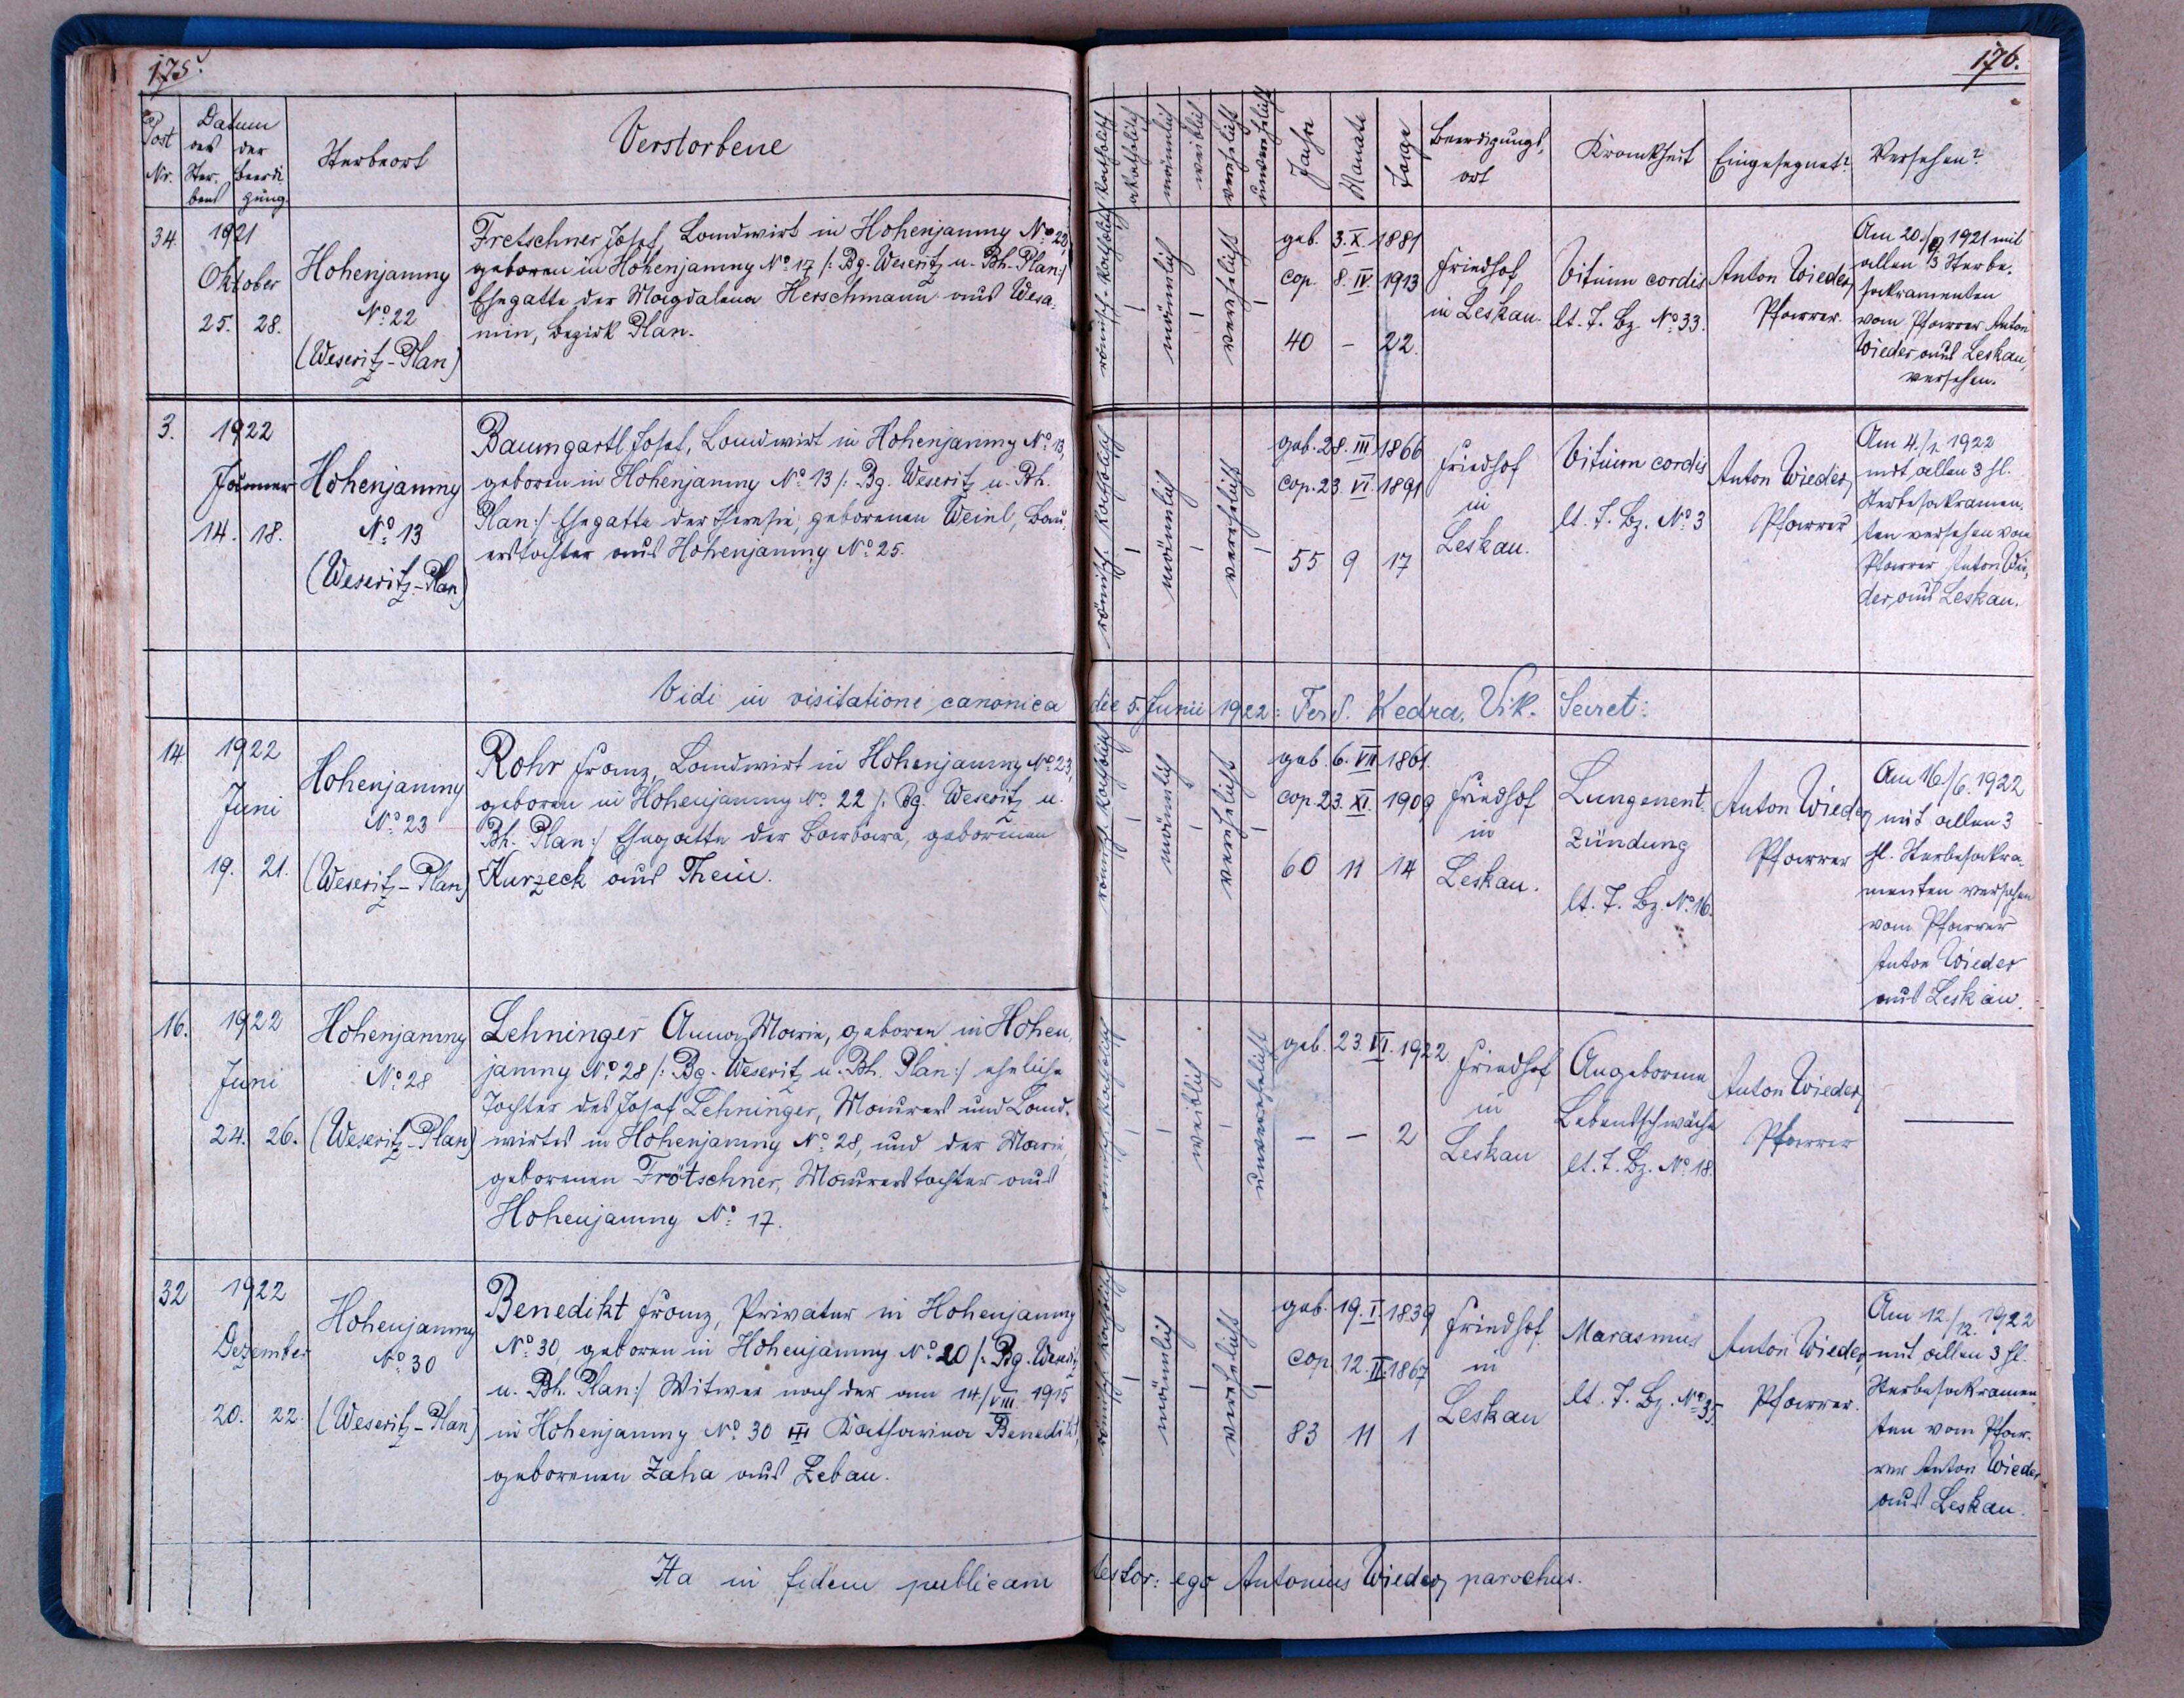 175.
Post Nr.
Datum
des Ster-
bens
der Beerdi-
gung.
Sterbeort
Verstorbene
34.
1921
Oktober
25. 28.
Hohenjamny
No 22
(Weseritz-Plan)
Fretschner Josef, Landwirt in Hohenjamny No 22,
geboren in Hohenjamny No 17 /: Bg. Weseritz u. Bh. Plan:/
Ehegatte der Magdalena Herschmann aus Wesa-
min, Bezirk Plan.
3.
1922
Jänner
14. 18.
Hohenjamny
No 13
(Weseritz-Plan)
Baumgartl Josef, Landwirt in Hohenjamny No 13,
geboren in Hohenjamny No 13 /: Bg. Weseritz u. Bh.
Plan:/ Ehegatte der Theresie, geborenen Weinl, Bau-
erstochter aus Hohenjamny No 25.
Vidi in visitatione canonica
14
1922
Juni
19. 21.
Hohenjamny
No 23
(Weseritz-Plan)
Rohr Franz, Landwirt in Hohenjamny No 23,
geboren in Hohenjamny No 22 /: Bg. Weseritz u.
Bh. Plan:/ Ehegatte der Barbara, geborenen
Kurzeck aus Thein.
16.
1922
Juni
24. 26.
Hohenjamny
No 28
(Weseritz-Plan)
Lehninger Anna Marie, geboren in Hohen-
jamny No 28 /: Bg. Weseritz u. Bh. Plan:/ eheliche
Tochter des Josef Lehninger, Maurers und Land-
wirtes in Hohenjamny No 28, und der Marie,
geborenen Frötschner, Maurerstochter aus
Hohenjamny No 17.
32
1922
Dezember
20. 22.
Hohenjamny
No 30
(Weseritz-Plan)
Benedikt Franz, Privatier in Hohenjamny
No 30, geboren in Hohenjamny No 20 /: Bg. Weseritz
u. Bh. Plan:/ Witwer nach der am 14/VIII. 1915
in Hohenjamny No 30 Katharina Benedikt,
geborenen Zaha aus Zebau.
Ita in fidem publicam
176.
katholisch
akatholisch
männlich
weiblich
verehelicht
unverehelicht
Jahre
Monate
Tage
Beerdigungs-
ort
Krankheit
Eingesegnet?
Versehen?
römisch-katholisch
männlich
verehelicht
geb. 3. X. 1881
cop. 8. IV. 1913
40 – 22.
Friedhof
in Leskau.
Vitium cordis
lt. T. Bz. No 33.
Anton Wieder,
Pfarrer.
Am 20./9. 1921 mit
allen 3 Sterbe-
sakramenten
vom Pfarrer Anton
Wieder aus Leskau,
versehen.
römisch-katholisch
männlich
verehelicht
geb. 28. III. 1866
cop. 23. VI. 1891
55 9 17
Friedhof
in
Leskau.
Vitium cordis
lt. T. Bz. No 3
Anton Wieder,
Pfarrer
Am 4./1. 1922
mit allen 3 hl.
Sterbesakramen-
ten versehen vom
Pfarrer Anton Wie-
der, aus Leskau.
die 5. Junii 1922: Ferd. Kedra, Vik. Secret:
römisch-katholisch
männlich
verehelicht
geb. 6. VII 1861.
cop. 23. XI. 1909
60 11 14
Friedhof
in
Leskau.
Lungenent-
zündung
lt. T. Bz. No 16.
Anton Wieder,
Pfarrer
Am 16./6. 1922
mit allen 3
hl. Sterbesakra-
menten versehen
vom Pfarrer
Anton Wieder
aus Leskau.
römisch-katholisch
weiblich
unverehelicht
geb. 23. VI. 1922.
– – 2
Friedhof
in
Leskau
Angeborene
Lebensschwäche
lt. T. Bz. No 18.
Anton Wieder,
Pfarrer
römisch-katholisch
männlich
verehelicht
geb. 19. I. 1839
cop. 12. II. 1867
83 11 1
Friedhof
in
Leskau
Marasmus
lt. T. Bz. No 35.
Anton Wieder,
Pfarrer.
Am 12./12. 1922
mit allen 3 hl.
Sterbesakramen-
ten vom Pfar-
rer Anton Wieder
aus Leskau.
testor: ego Antonius Wieder, parochus.